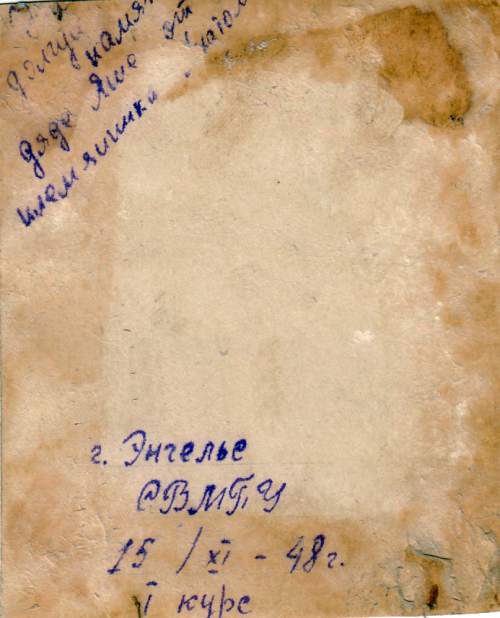 долгую
памят
дяде Яше от
племянника
г. Энгельс
СВМПУ
15 / XI - 48 г.
I курс